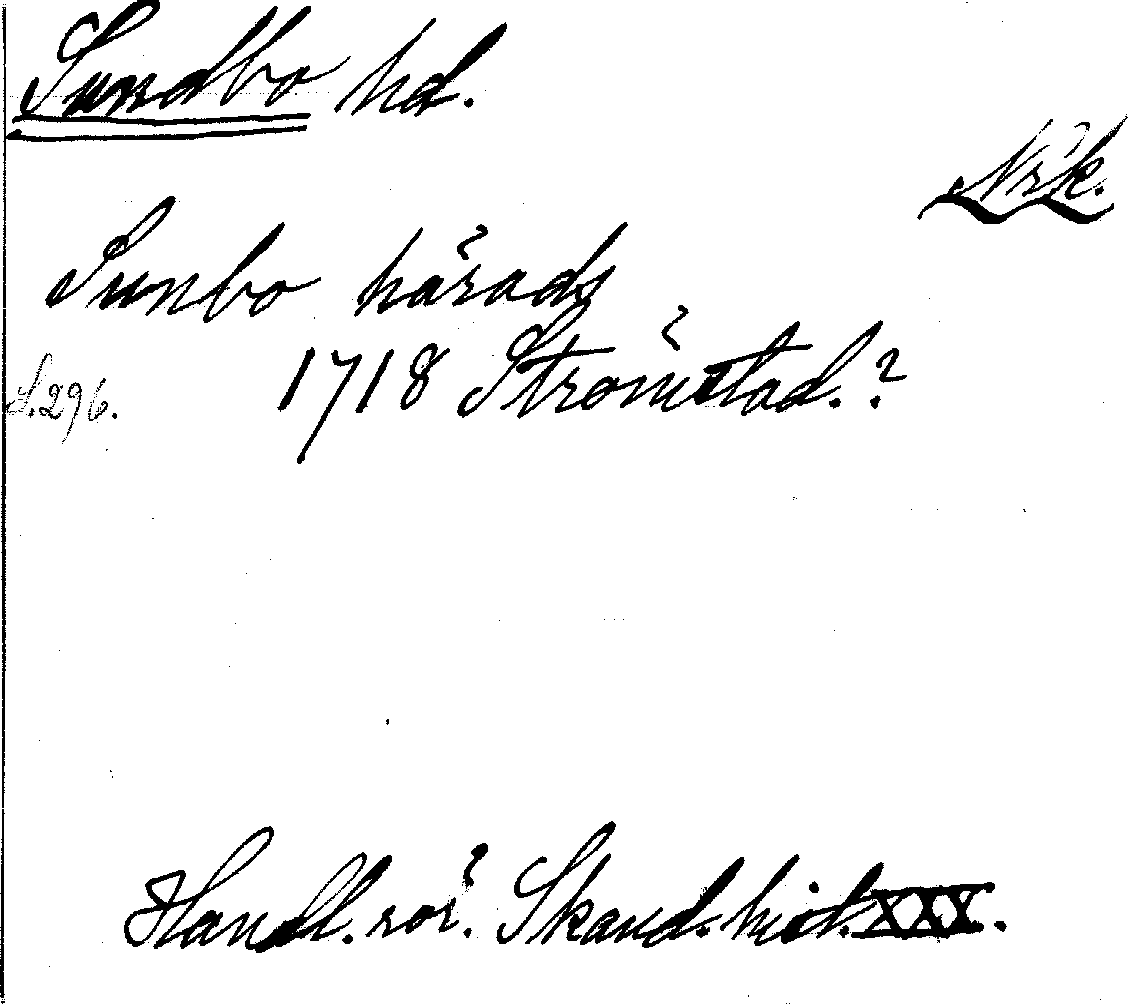 Sundbo hd.
Närk.
Sunbo härads
S. 296. 1718 Strömstad.?
Handl. rör. Skand. hist. XXX.